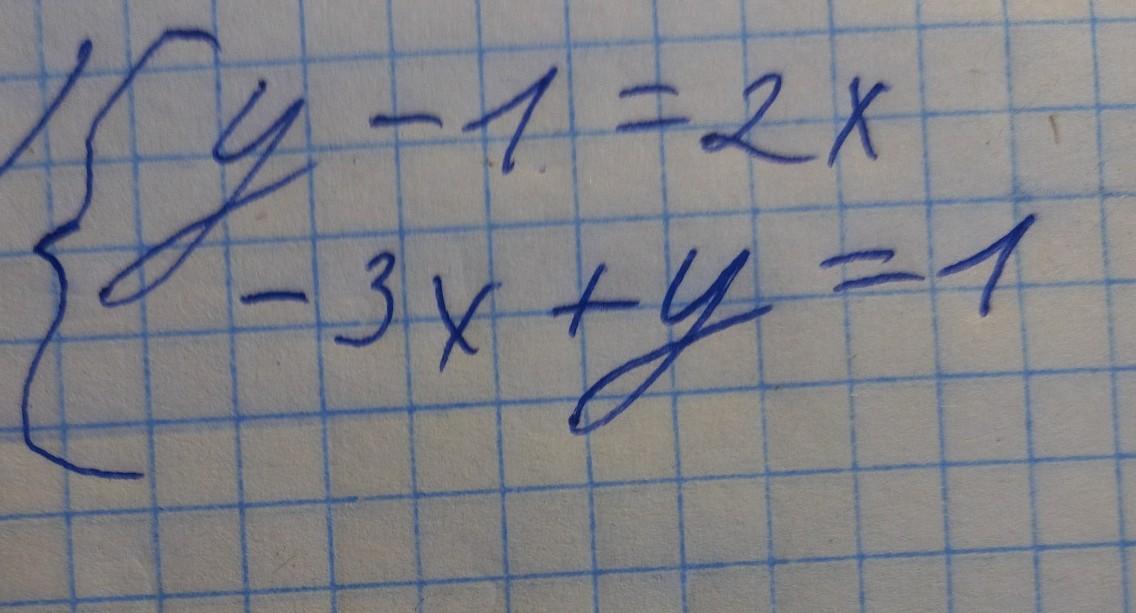 y - 1 = 2x
- 3x + y = 1